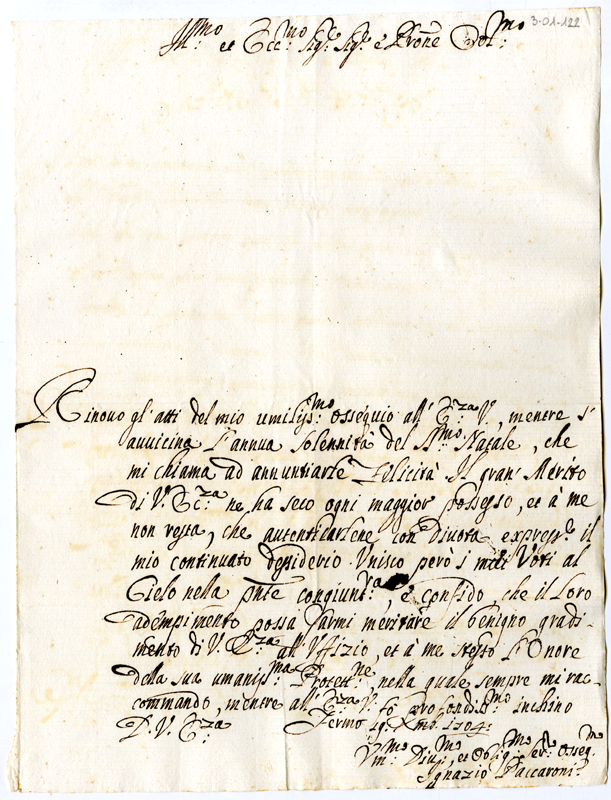 3-01-122
Ill:mo et Ecc:mo Sig.e Sig.e e Prone Col:mo
Rinovo gl'atti del mio umiliss:mo ossequio all' E:za V., mentre s'
avvicina l'annua solennità del S:mo Natale, che
mi chiama ad annuntiarle felicità. Il gran' Merito
di V. Ecc:za ne ha seco ogni maggior possesso, et à me
non resta, che autenticarlene con divota express:e il
mio continuato desiderio. Unisco però i miei Voti al
Cielo nella pnte congiunt:ra, e confido, che il Loro
adempimento possa farmi meritare il benigno gradi-
mento di V. E:za all'Uffizio, et à me stesso l'Onore
della sua umaniss:ma Protett:ne nella quale sempre mi rac-
commando, mentre all' E:za V. fò profondiss:mo inchino
D. V. E:za Fermo 19. Xmb. 1704.
Um:mo Div:mo, et Oblig:mo Ser:e Osseq:mo
Ignazio Paccaroni